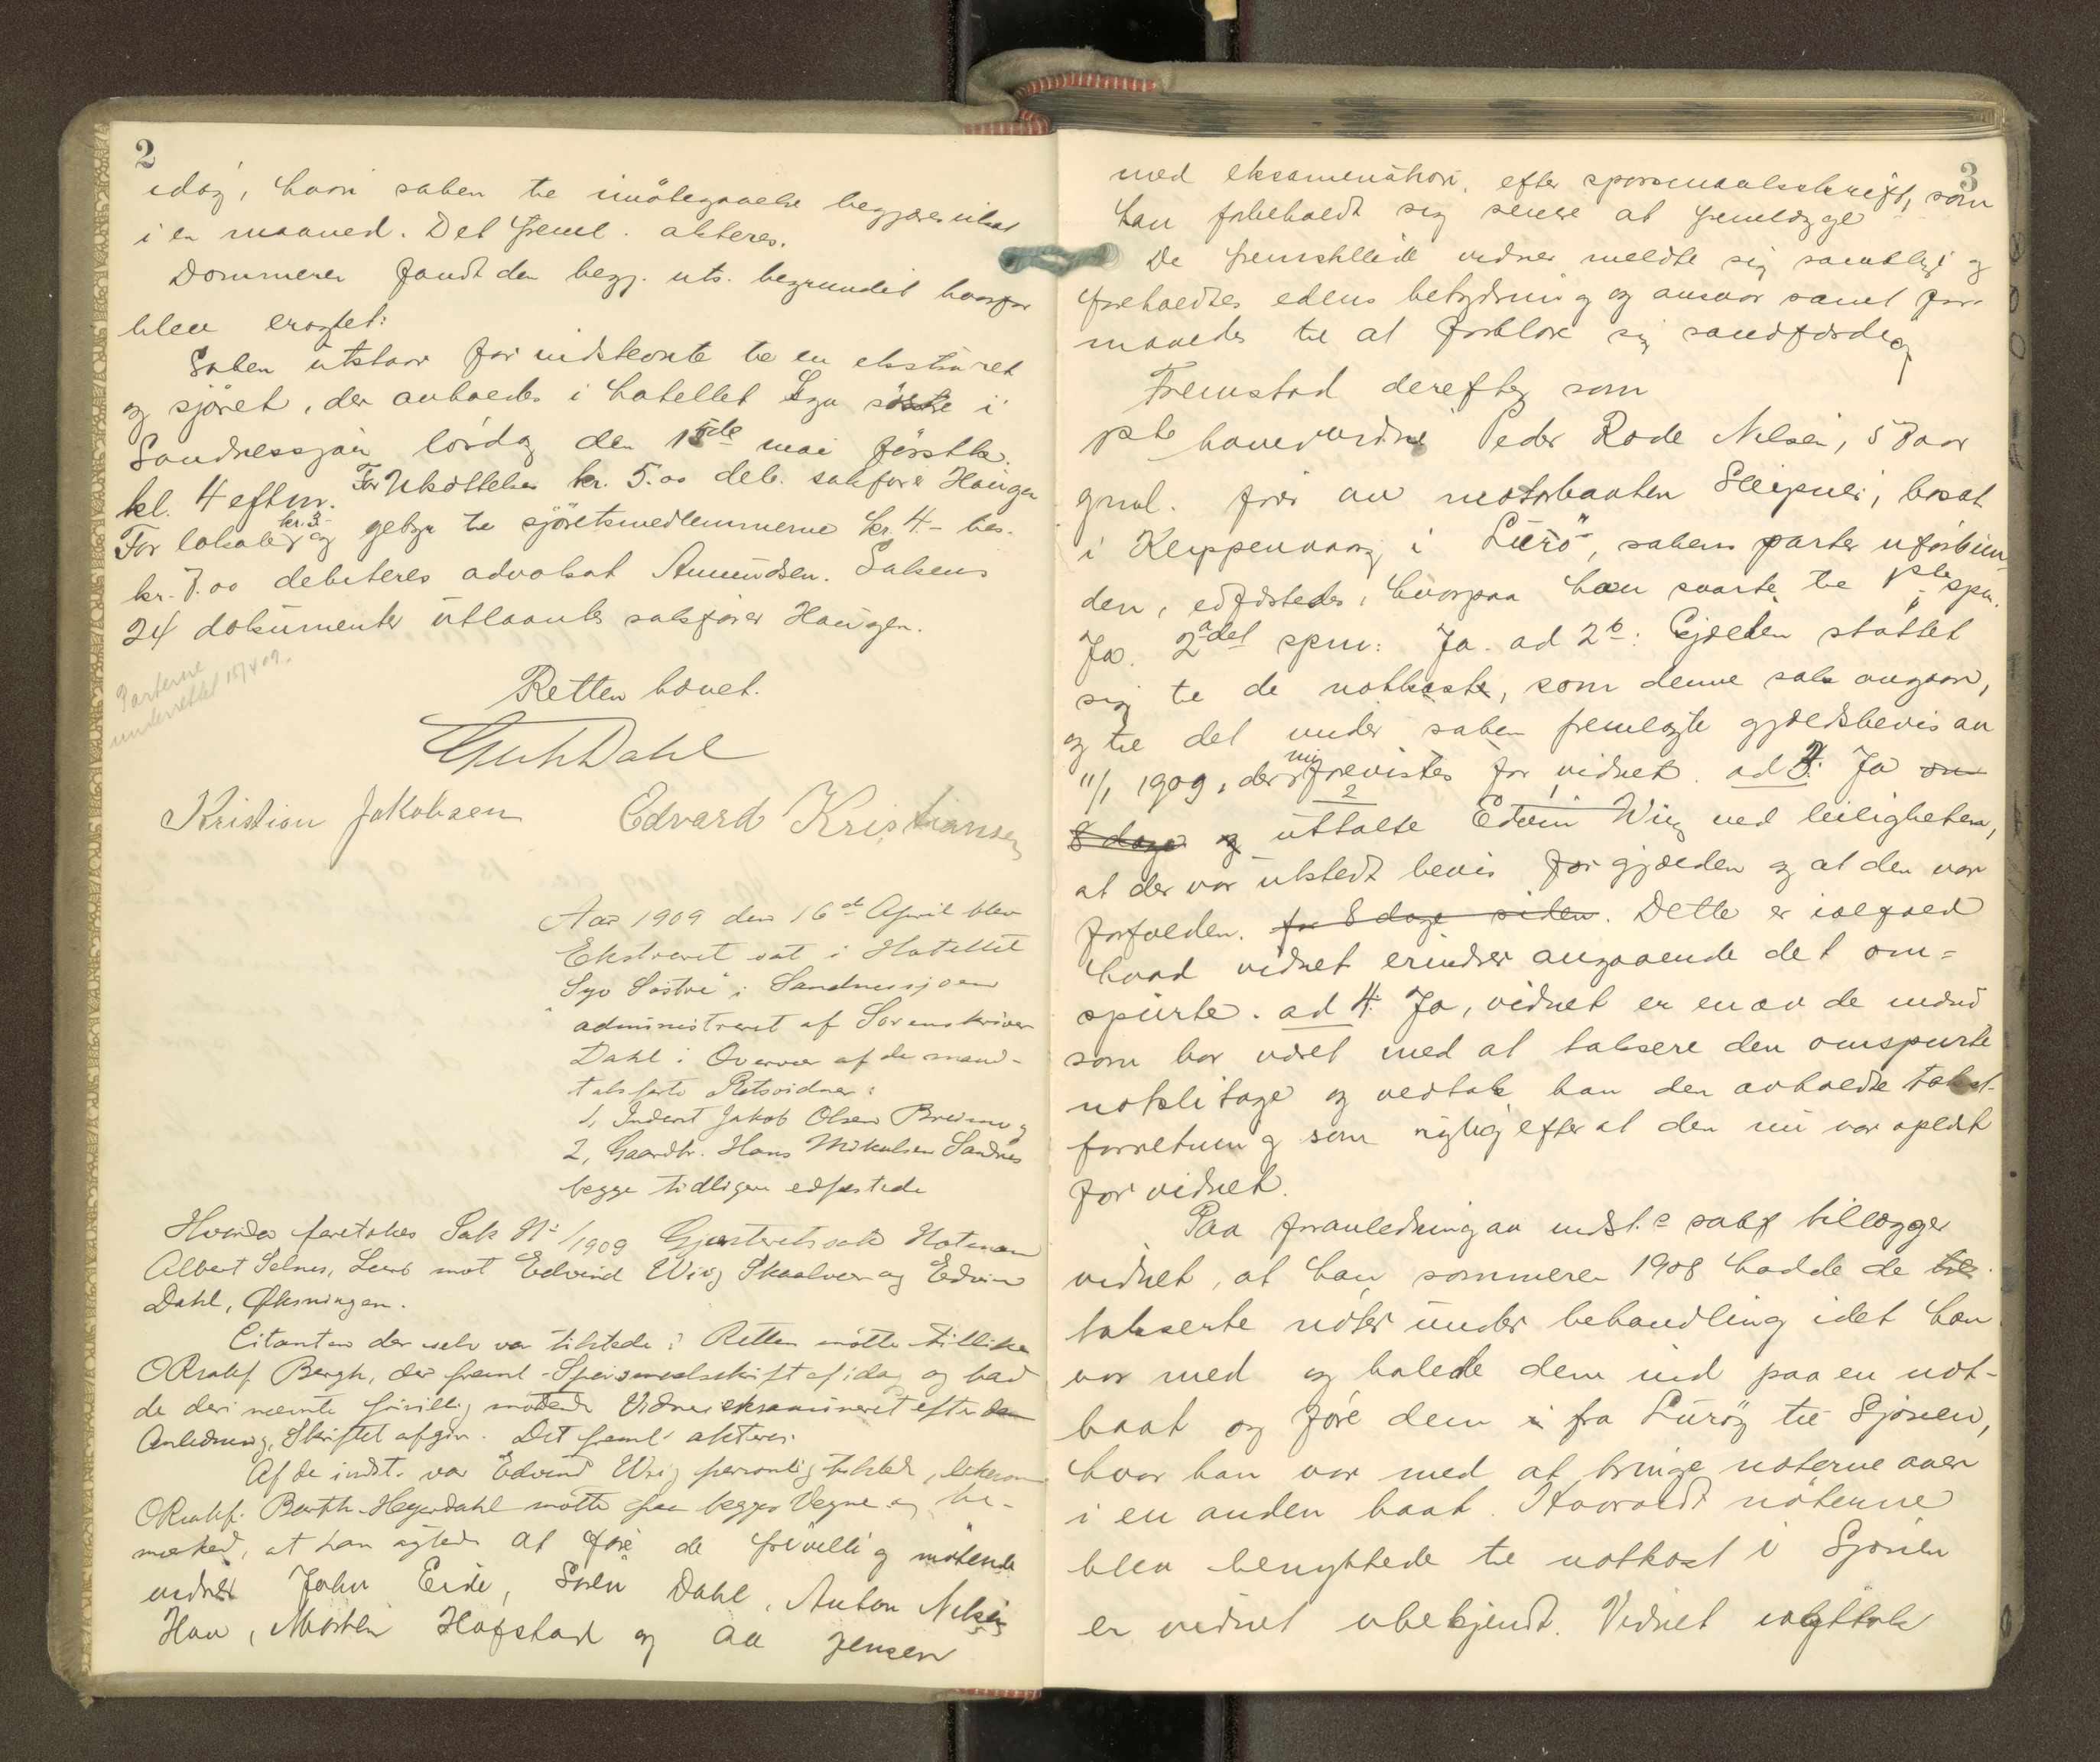 2
idag, hvori saken til imøtegaaelse begjæres utsat
i en maaned. Det freml. akteres.
Dommeren fandt den begj. uts. begrundet hvorfor
blev eragtet:
Saken utstaar for indstevnte til en ekstraret
og sjøret, der avholdes i hotellet Syv søstre i
Sandnessjøen lørdag den 15de mai førstk.
kl. 4 efterm. For Utsættelse kr. 5.00 deb. sakfører Haugen
For lokale kr. 3- og gebyr til sjøretsmedlemmerne kr. 4- tils.
kr. 7.00 debiteres advokat Amundsen. Sakens
24 dokumenter utlaantes sakfører Haugen.
Parterne
underrettet 15/4 09.
Retten hævet.
Dahl
Kristian Jakobsen Edvard Kristiansen
Aar 1909 den 16de April blev
Ekstraret sat i Hotellet
"Syv Søstre" i Sandnessjøen
administreret af Sorenskriver
Dahl i Overvær af de mand-
talsførte Retsvidner:
1, Inderst Jakob Olsen Breimo og
2, Gaardbr. Hans Mikalsen Sandnes
begge tidligere edfæstede
Hvorda foretokes Sak No /1909 Gjesteretssak Notmand
Albert Selnes, Lurø mot Edvind Wiig Skaalvær og Edvin
Dahl, Øksningen.
Citanten der selv var tilstede i Retten møtte tillike
ORsakf. Bergh, der freml. Spørsmaalsskrift af idag og bad
de deri nævnte frivillig møtende Vidner eksamineret efter den
Anledning, Skriftet afgir. Det freml. akteres.
Af de indst. var Edvind Wiig personlig tilstede, likesom
ORsakf. Barth-Heyerdahl møtte paa begges Vegne og be-
mærked, at han agtede at føre de frivillig møtende
vidner John Eide, Søren Dahl, Anton Nilsen
Hav, Morten Hofstad og Aa Jensen
3
med eksamination. efter spørsmaalsskrift, som
han forbeholdt sig senere at fremlægge
De fremstillede vidner meldte sig samtlig og
foreholdtes edens betydning og ansvar samt for-
manedes til at forklare sig sandfærdig
Fremstod derefter som
1ste hovedvidne Peder Rode Nilsen, 57 aar
gml. fører av motorbaaten Sleipner, bosat
i Kleppenvaag i Lurø, sakens parter uforbun-
den, edfæstedes, hvorpaa han svarte til 1ste spm.
Ja. 2a det spm: Ja. ad 2b: Gjælden støttet
sig til de notkaste, som denne sak angaar,
og til det under saken fremlagte gjældsbevis av
11/1 1909, der nu forevistes for vidnet. ad 3: Ja om
8 dage og uttalte Edvin Wiig ved leiligheten,
at der var utstedt bevis for gjælden og at den var
forfalden. for 8 dage siden. Dette er ialfald
hvad vidnet erindrer angaaende det om-
spurte. ad 4: Ja, vidnet er en av de mænd
som har været med at taksere den omspurte
notslitage og vedtok han den avholdte takst-
forretning som rigtig efter at den nu var oplæst
for vidnet.
Paa foranledning av indst.s sakf tillægger
vidnet, at han sommeren 1908 hadde de til
takserte nøter under behandling idet han
var med og halede dem ind paa en not-
baat og føre dem i fra Lurøy til Sjonen,
hvor han var med at bringe nøterne over
i en anden baat. Hvorvidt nøterne
blev benyttede til notkast i Sjonen
er vidnet ubekjendt. Vidnet iagttok